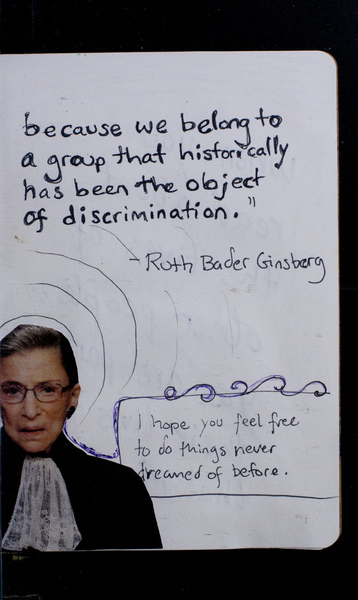 because we belong to
a group that historically
has been the object
of discrimination."
- Ruth Bader Ginsberg
I hope you feel free
to do things never
dreamed of before.